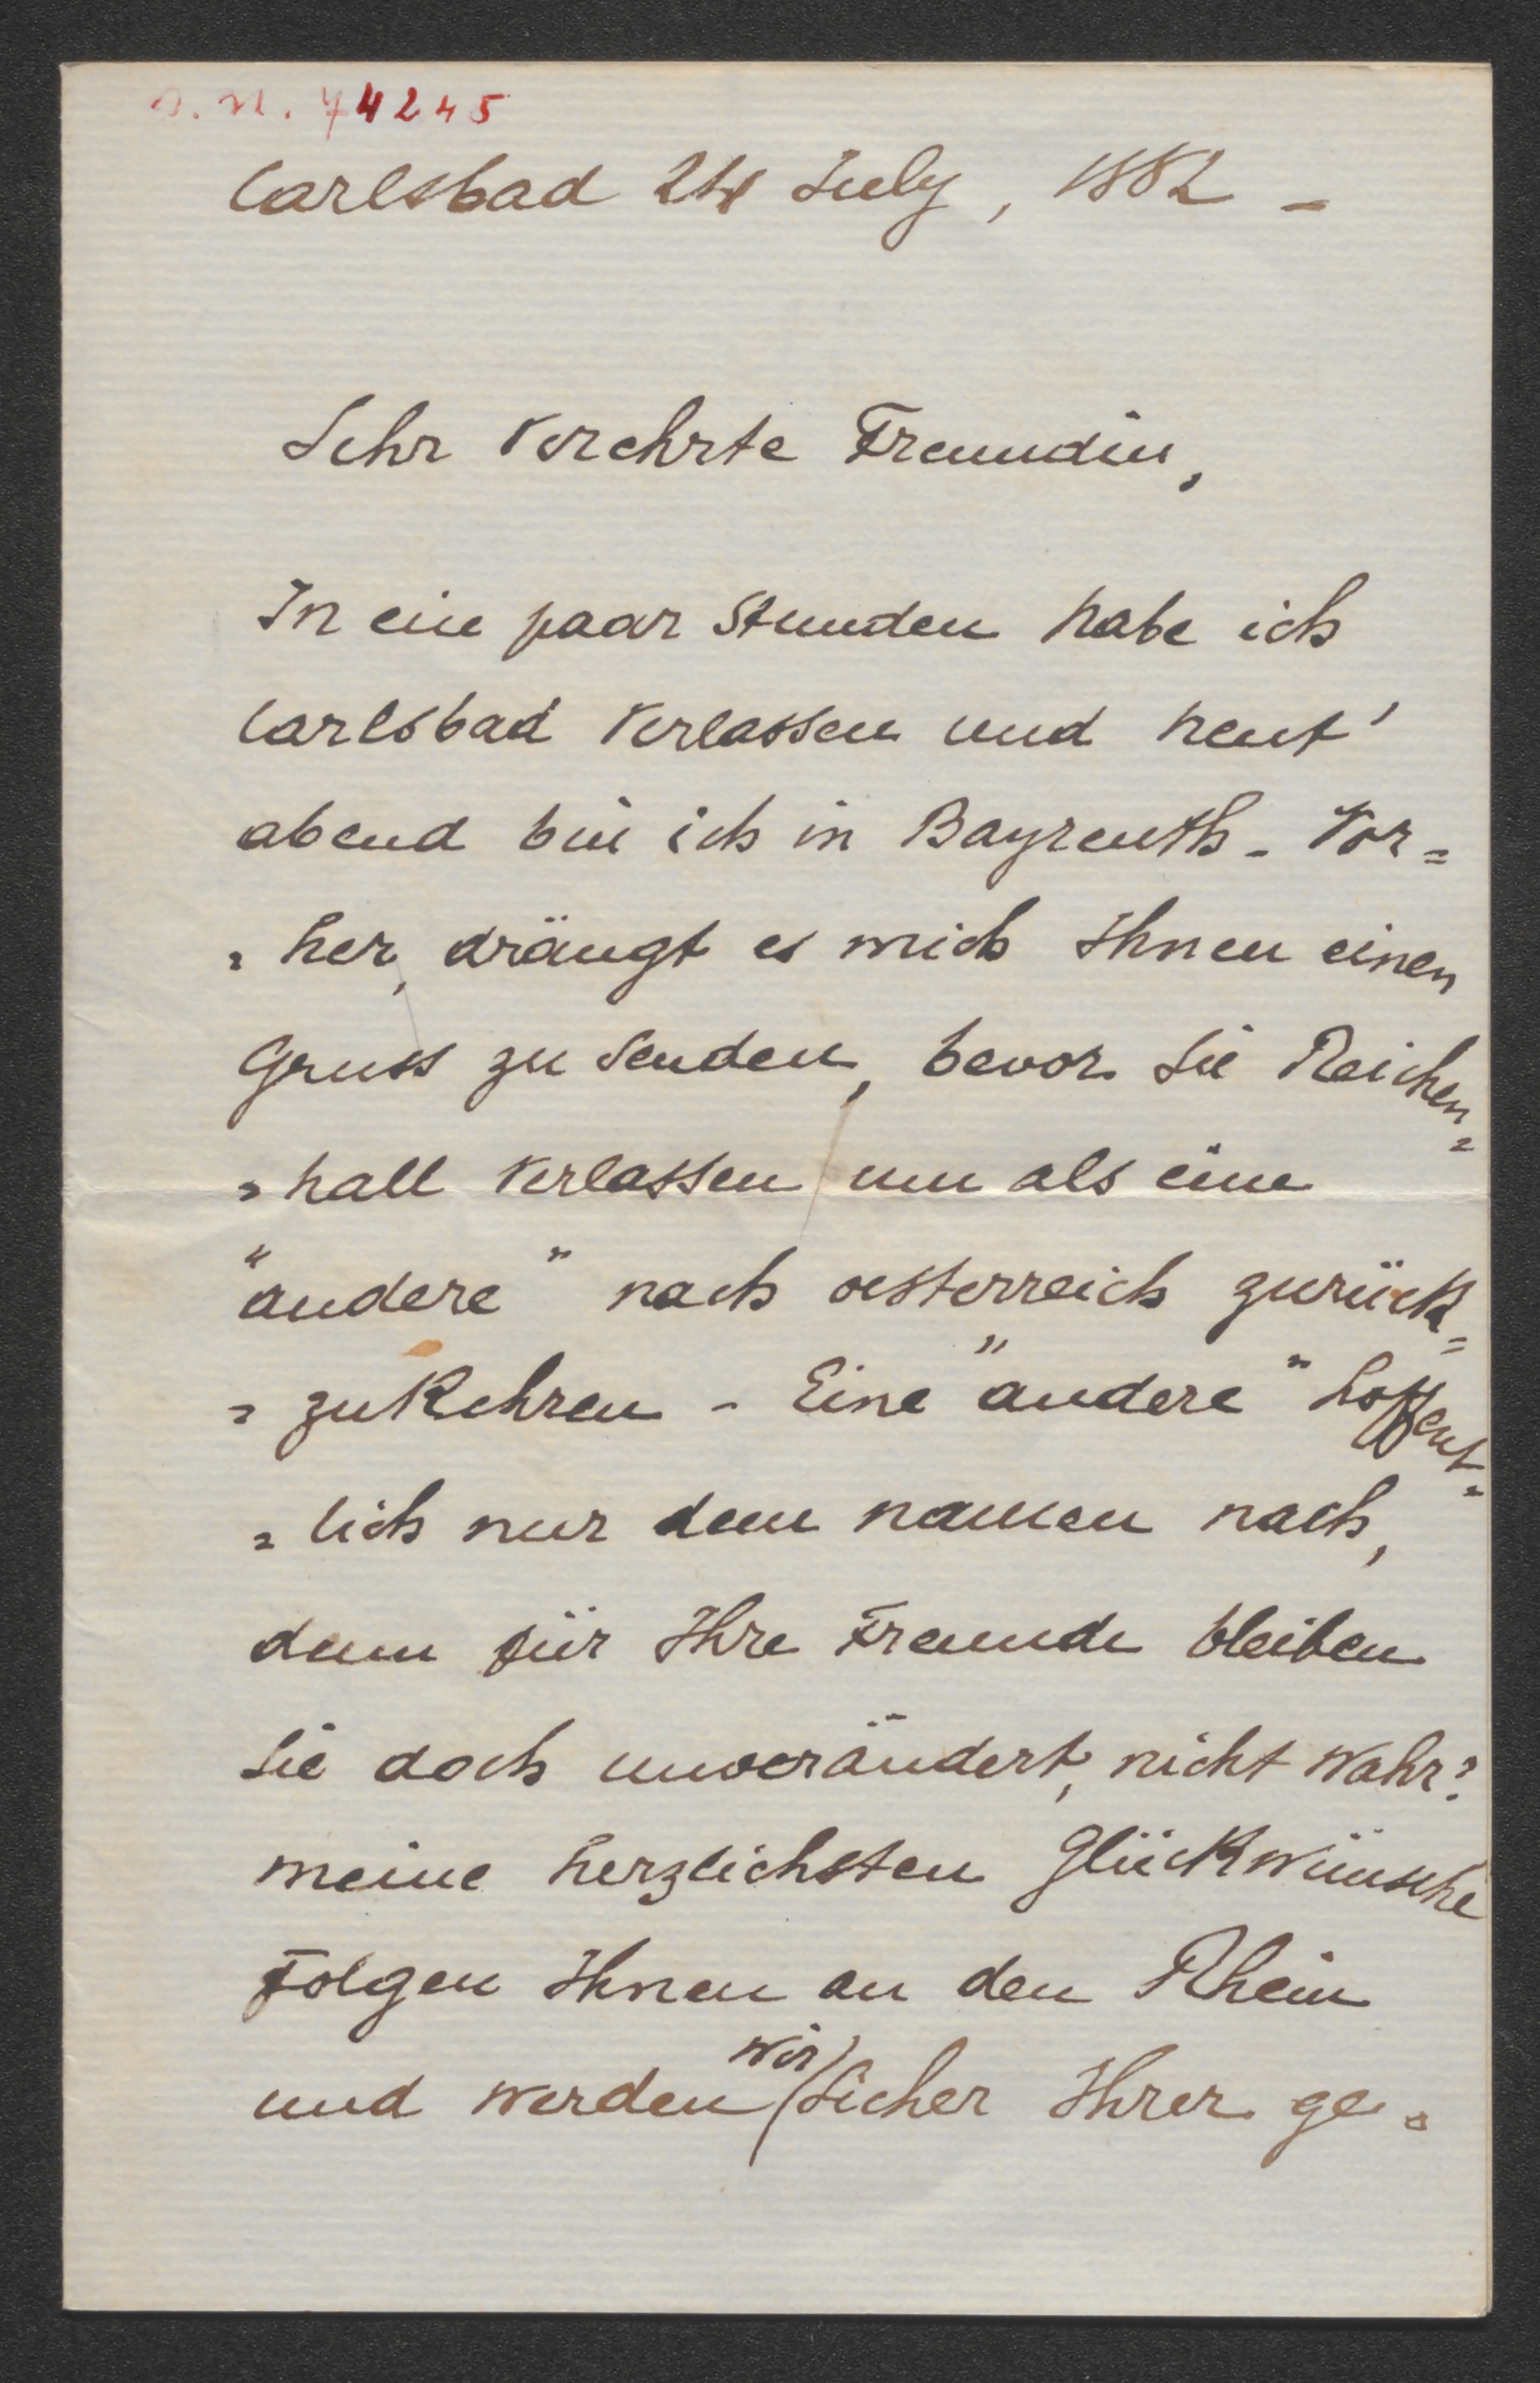 I. N. 74245
Carlsbad 24 July, 1882 -
Sehr Verehrte Freundin,
In ein paar Stunden habe ich
Carlsbad Verlassen und heut'
abend bin ich in Bayreuth - Vor=
=her, drängt es mich Ihnen einen
Gruss zu senden, bevor Sie Reichen=
=hall Verlassen um als eine
"andere" nach oesterreich zurück=
=zukehren - Eine "andere" hoffent=
=lich nur dem namen nach,
denn für Ihre Freunde bleiben
Sie doch unverändert, nicht wahr?
meine herzlichsten Glückwünsche
Folgen Ihnen an den Rhein
wir
und werden sicher Ihrer ge=